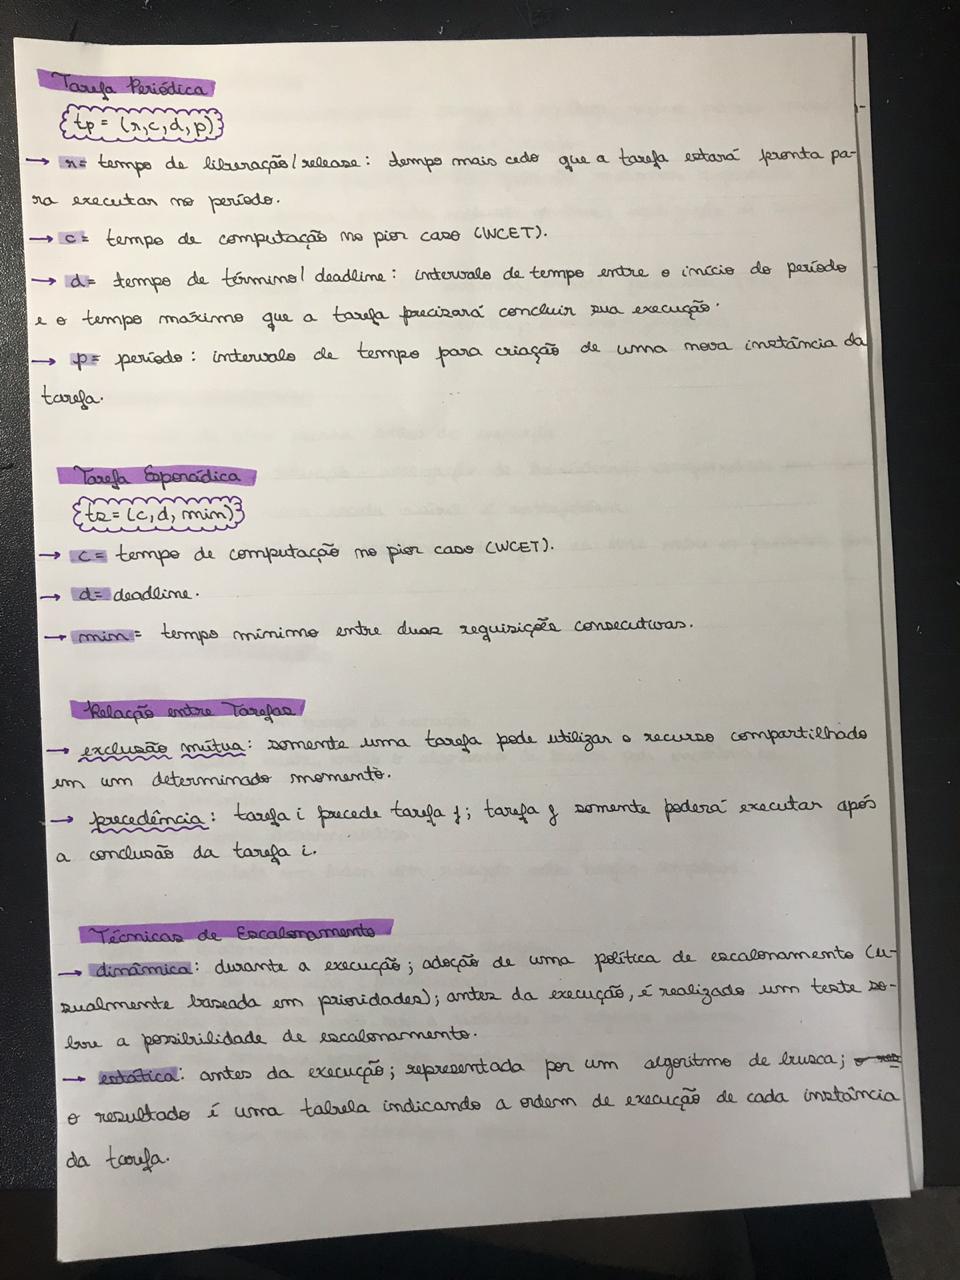 Tarefa Periódica
tp = (r,c,d,p)
→ r= tempo de liberação/release: tempo mais cedo que a tarefa estará pronta pa-
ra executar no período.
→ c= tempo de computação no pior caso (WCET).
→ d= tempo de término/deadline: intervalo de tempo entre o início do período
e o tempo máximo que a tarefa precisará concluir sua execução.
→ p= período: intervalo de tempo para criação de uma nova instância da
tarefa.
Tarefa Esporádica
ts=(c,d,min)
→ c= tempo de computação no pior caso (WCET).
→ d= deadline.
→ min= tempo mínimo entre duas requisições consecutivas.
Relação entre Tarefas
→ exclusão mútua: somente uma tarefa pode utilizar o recurso compartilhado
em um determinado momento.
→ precedência: tarefa i precede tarefa j; tarefa j somente poderá executar após
a conclusão da tarefa i.
Técnicas de Escalonamento
→ dinâmica: durante a execução; adoção de uma política de escalonamento (u-
sualmente baseada em prioridades); antes da execução, é realizado um teste so-
bre a possibilidade de escalonamento.
→ estática: antes da execução; representada por um algoritmo de busca;
o resultado é uma tabela indicando a ordem de execução de cada instância
da tarefa.